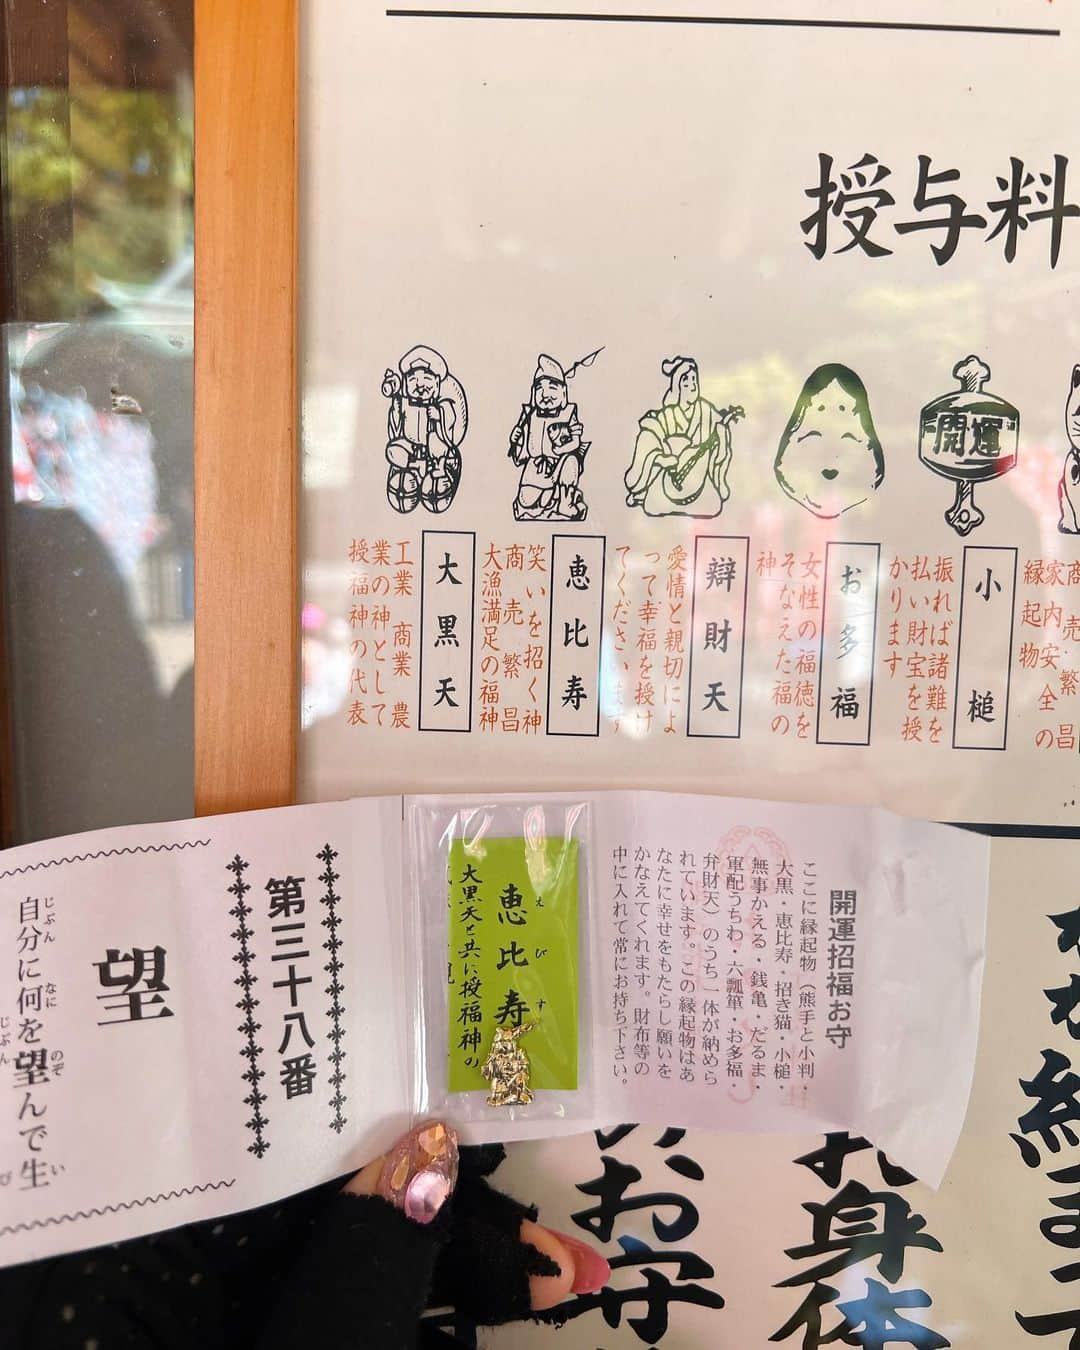 授与料
大黒天
工業 商業 農
業の神として
授福神の代表
恵比寿
笑いを招く神
商売繁昌
大漁満足の福神
辯財天
愛情と親切によ
って幸福を授け
てくださいます
お多福
女性の福徳を
そなえた福の
神
開運
小槌
振れば諸難を
払い財宝を授
かります
商売繁昌
家内安全の
縁起物
開運招福お守
ここに縁起物（熊手と小判・
大黒・恵比寿・招き猫・小槌・
無事かえる・銭亀・だるま・
軍配うちわ・六瓢箪・お多福・
弁財天）のうち一体が納めら
れています。この縁起物はあ
なたに幸せをもたらし願いを
かなえてくれます。財布等の
中に入れて常にお持ち下さい。
恵比寿
えびす
大黒天と共に授福神の
第三十八番
望
自分に何を望んで生
じぶん なに のぞ い
お守
身体